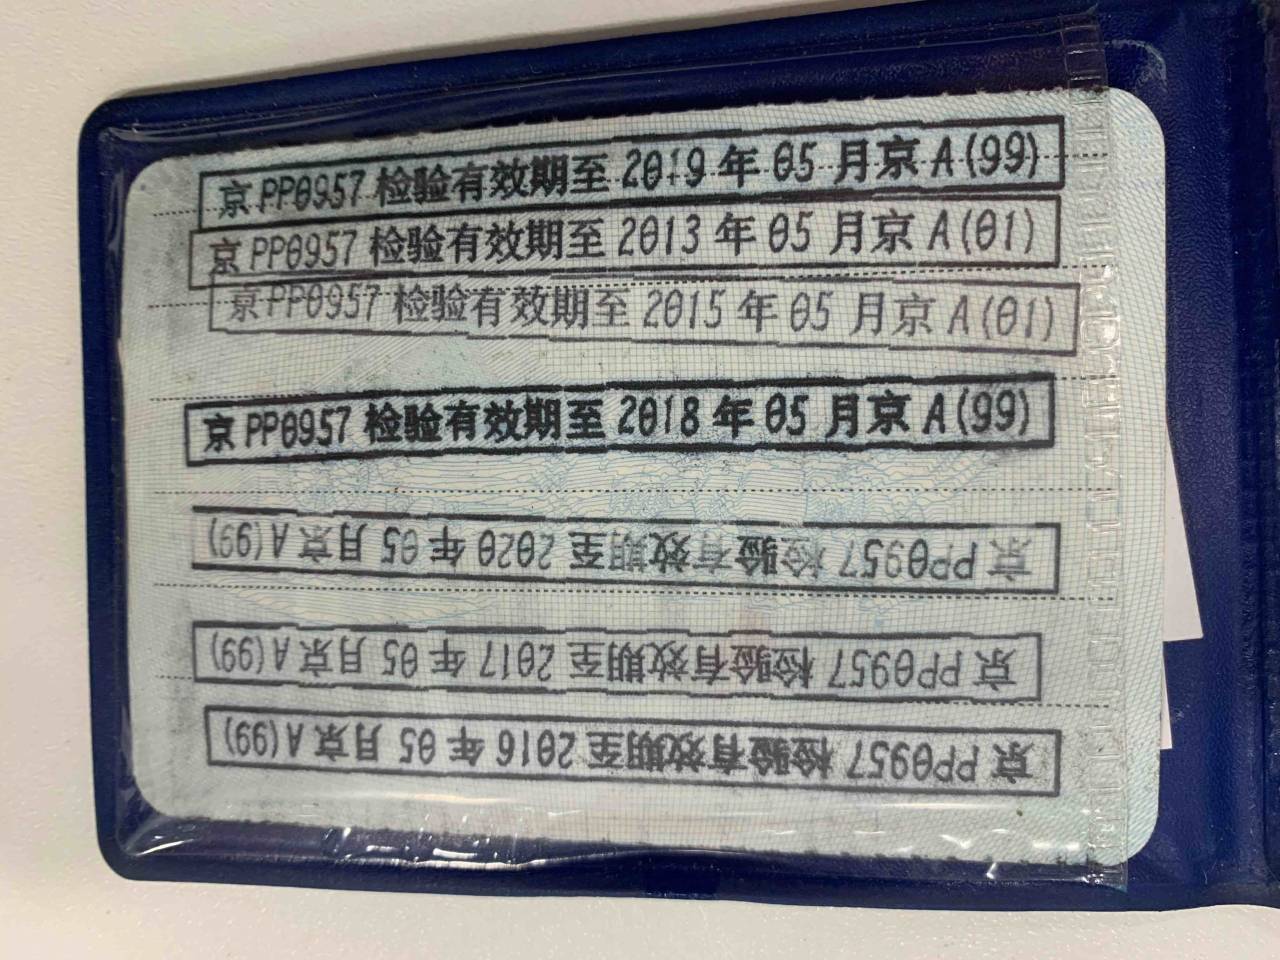 京PP0957检验有效期至2019年05月京A(99)
京PP0957检验有效期至2013年05月京A(01)
京PP0957检验有效期至2015年05月京A(01)
京PP0957检验有效期至2018年05月京A(99)
京PP0957检验有效期至2020年05月京A(99)
京PP0957检验有效期至2017年05月京A(99)
京PP0957检验有效期至2016年05月京A(99)